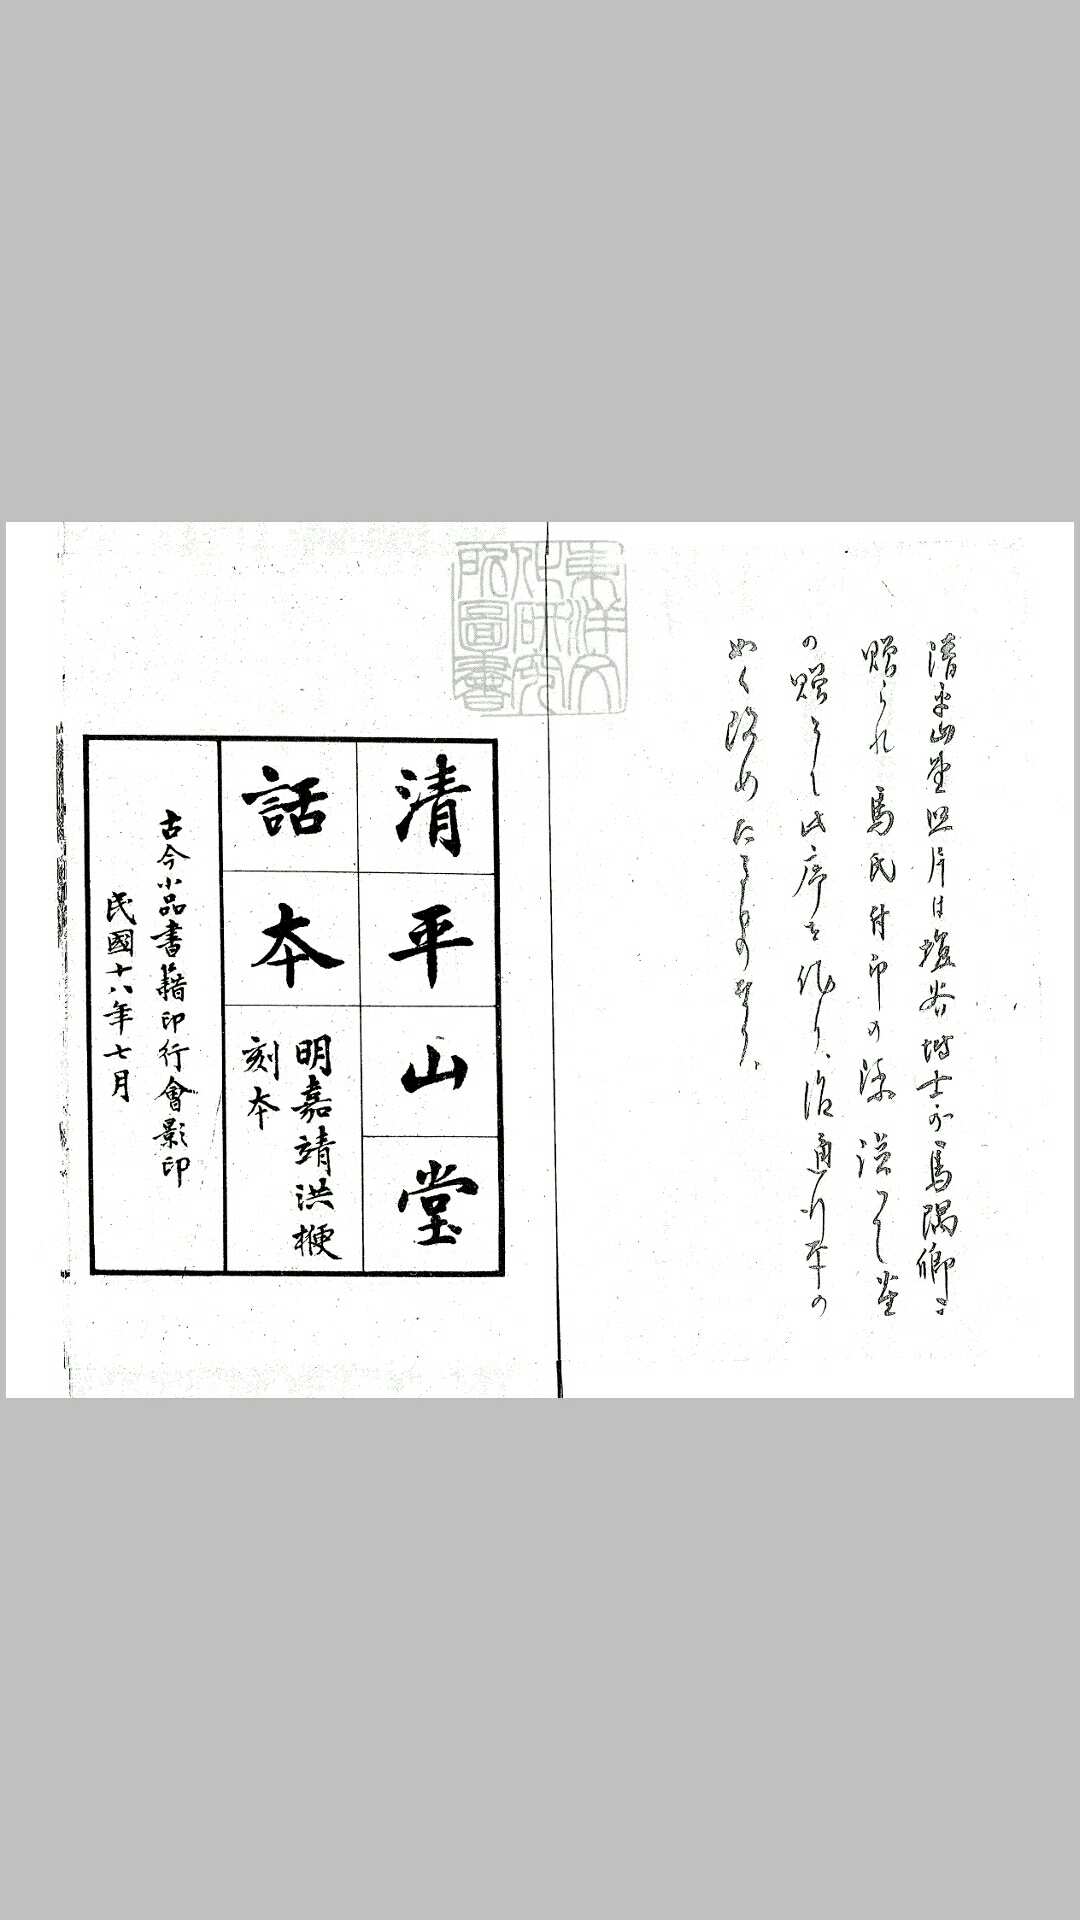 清平山堂照片は塩谷博士が馬隅卿に
贈られ馬氏付印の際
の贈りし此序を
如く改めたるものなり、
東洋文
化研究
所圖書
清平山堂
話本
明嘉靖洪楩
刻本
古今小品書籍印行會影印
民國十八年七月